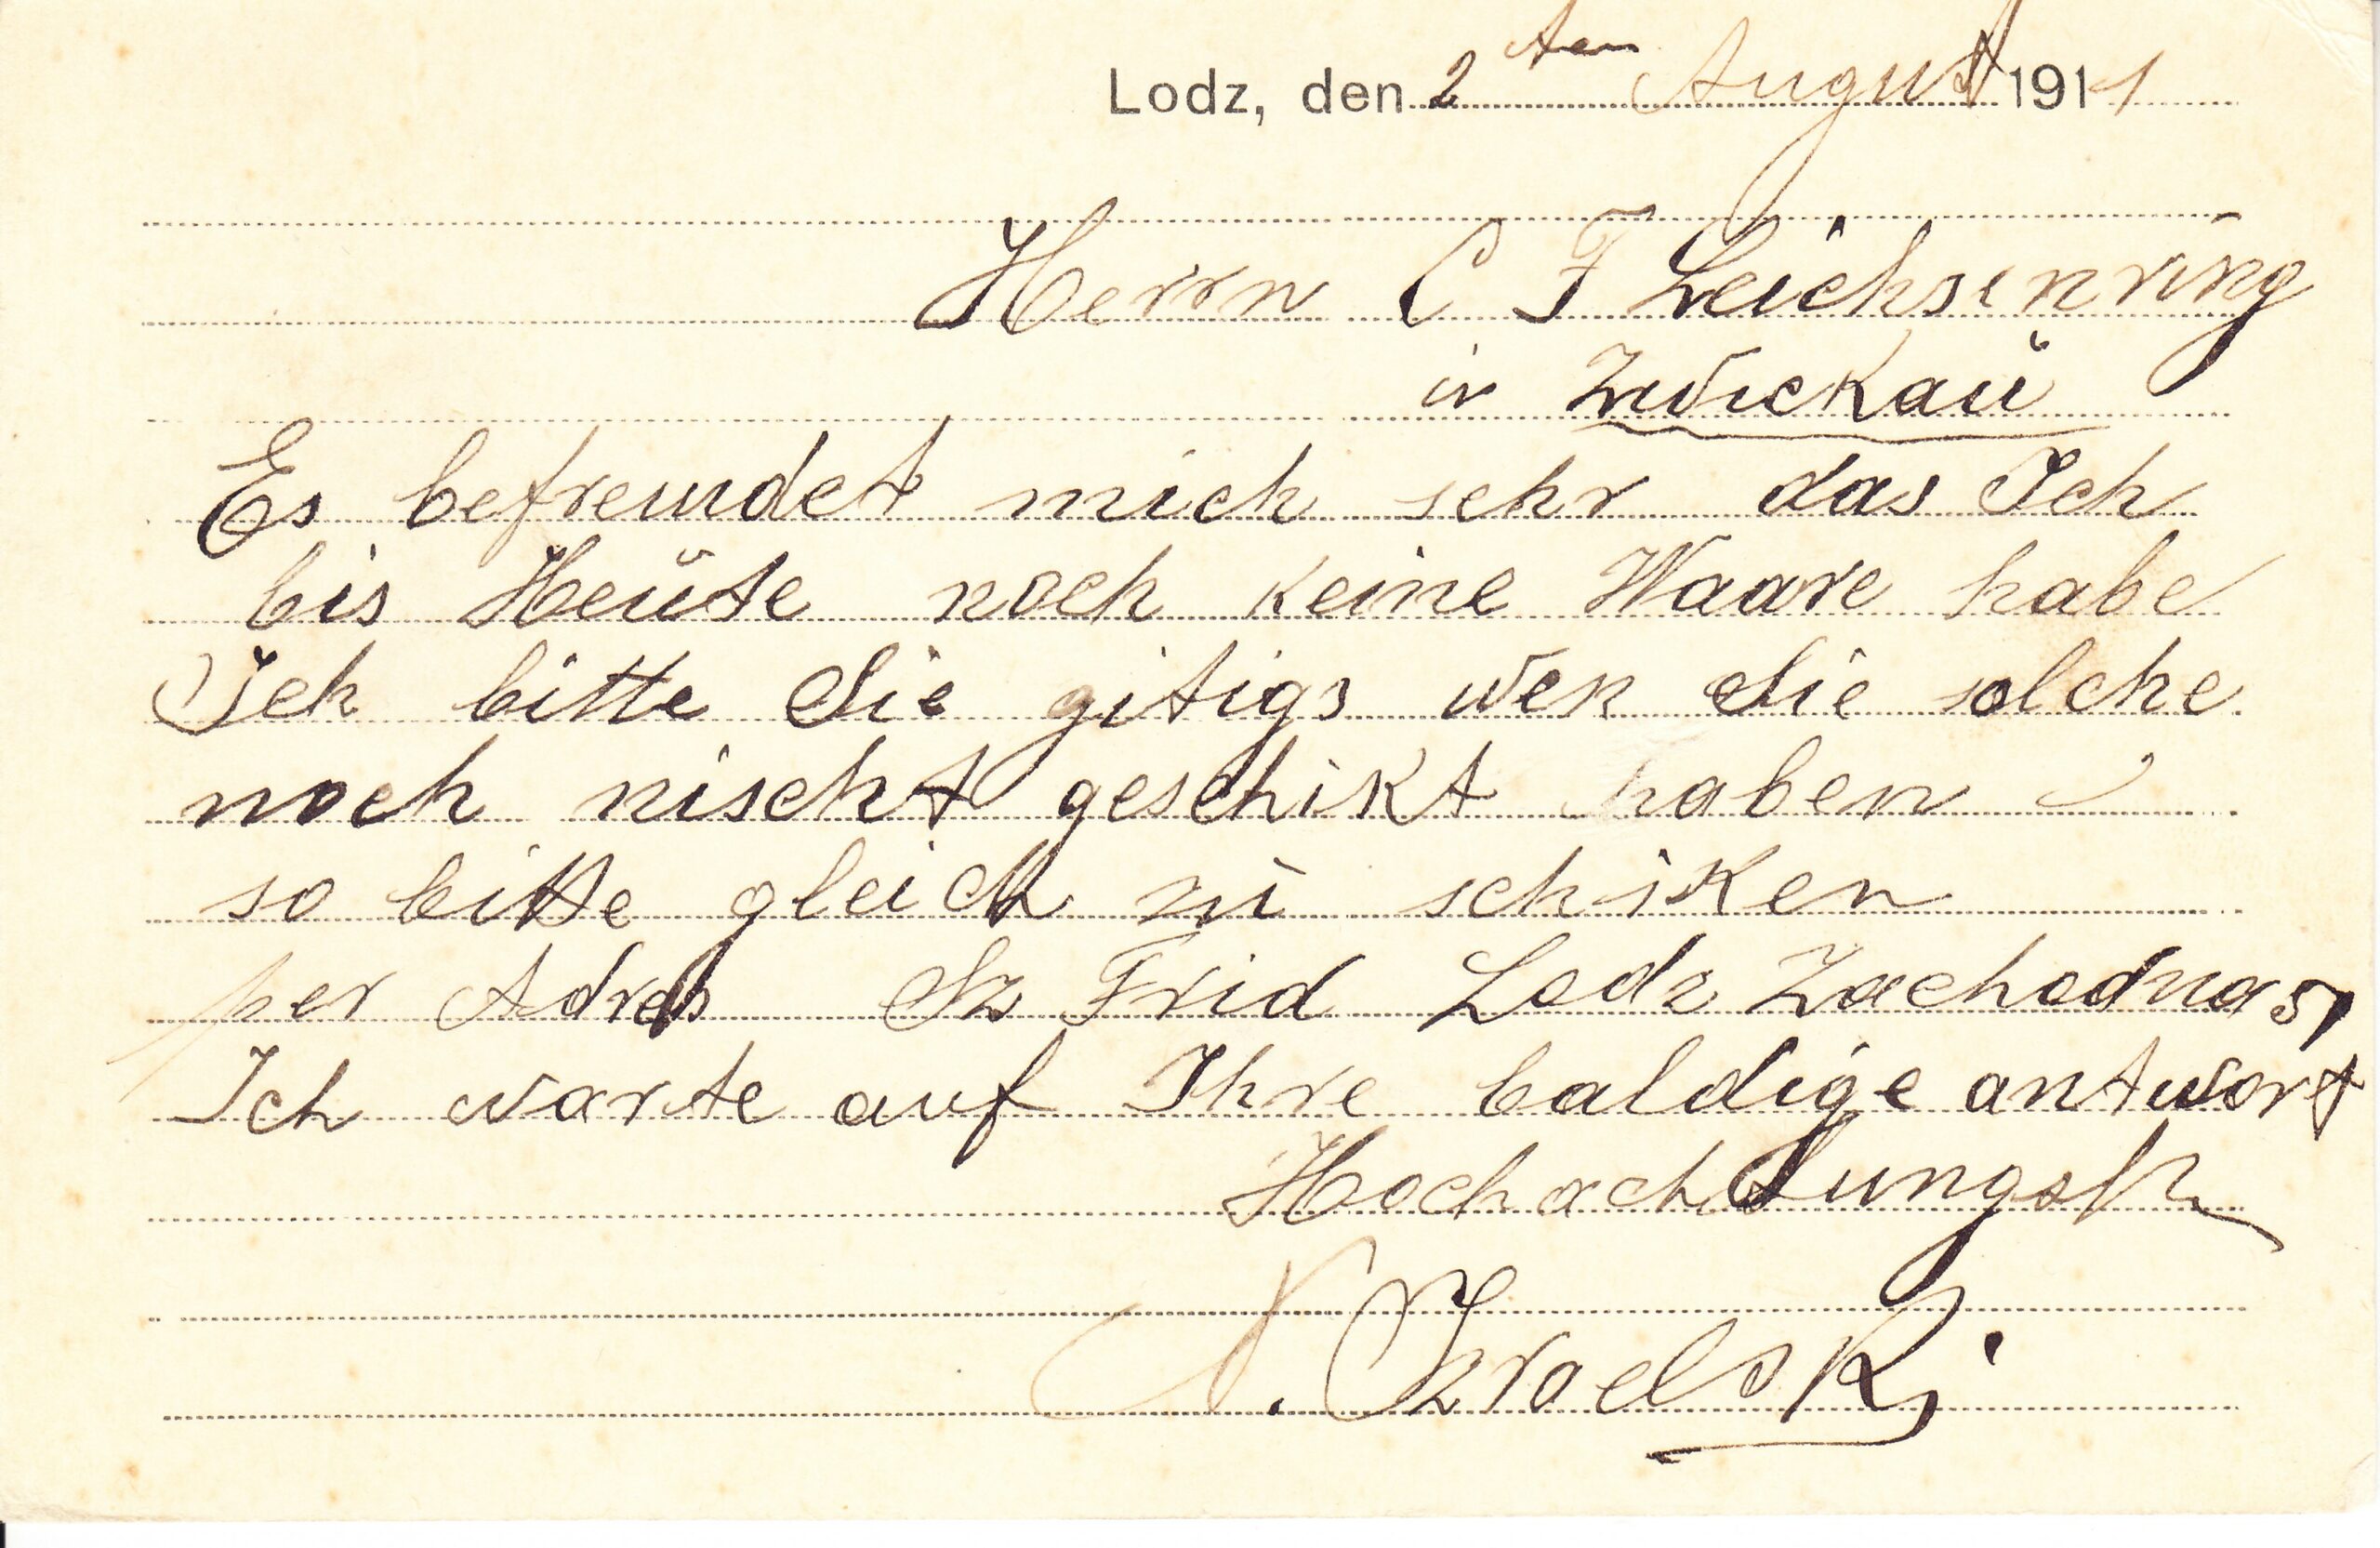 Lodz, den 2ten August 1911
Herrn C F Leichsenring
in Zwickaŭ
Es befremdet mich sehr das Ich
bis Heŭte noch keine Waare habe
Ich bitte Sie gitigs wen Sie solche
noch nischt geschikt haben
so bitte gleich zu schiken
per Adres Sz Frid Lodz Zachodna 57
Ich warte auf Ihre baldige antwort
Hochachtungsfl
N. Izraelski